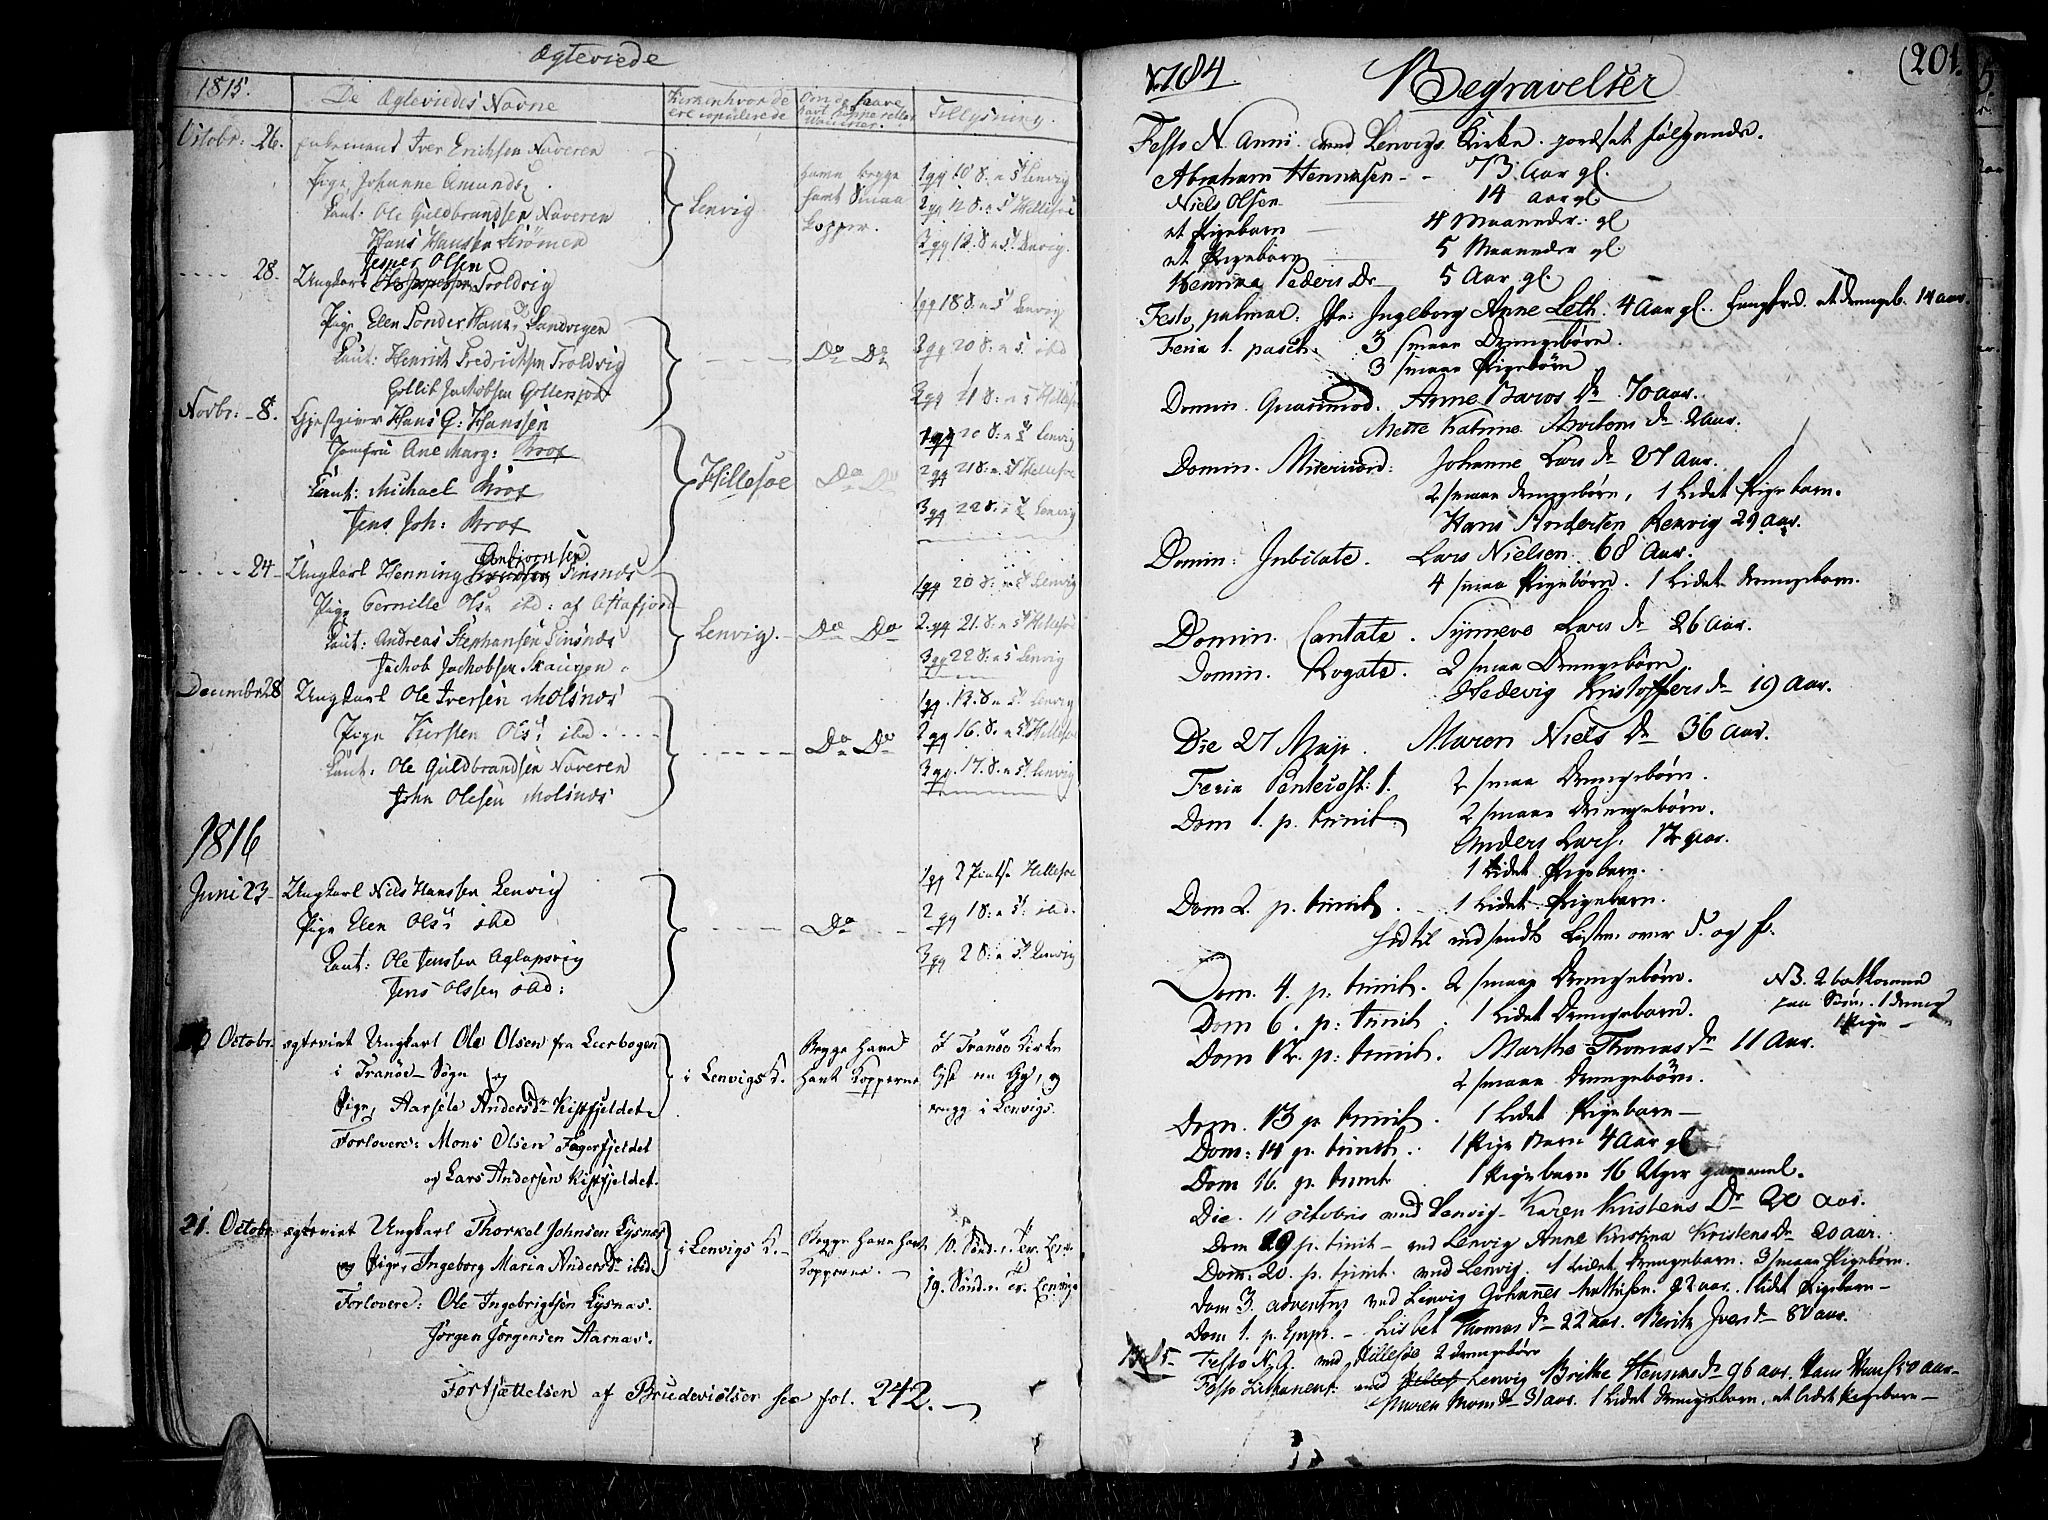 Ægteviede
1815.
De Ægteviedes Navne
Kirken hvor de
ere copulerede
Om de have
havt Koppe eller
Vaccine.
Tillysning.
Octobr: 26.
Enkemand Iver Erichsen Naveren
Pige, Johanne Amunds
Caut: Ole Guldbrandsen Naveren
Hans Hansen Strömen
Lenvig
have begge
havt Smaa
Kopper.
1gg 10 S: n 5t Lenvig
2gg 12 S: n 5t Hillesöe
3gg 13. S: n 5t Lenvig.
28.
Jesper Olsen
Ungkarl Troldvig
Pige Elen Sonder Hans Sandvigen
Caut: Henrich Fredrichsen Troldvig
Gollit Jachobsen Gollenfjord
Do Do
1gg 18 S: n 5t Lenvig
2gg 20 S: n 5t ibd
3gg 21 S: n 5 Hillesöe
Novbr: 8.
Gjestgiver Hans G: Hanssen
Jomfru Ane Marg: Brox
Caut: Michael Brox
Jens Joh: Brox
Hillesöe
Do Do
1gg 20 S: n 5t Lenvig
2gg 21 S: n 5t Hillesöe
3gg 22 S: n 5t Lenvig
24
Anbiornsen
Ungkarl Henning Finsnes
Pige Pernille Olsd ibd: af Astafjord
Caut: Andreas Stephansen Finsnes
Jachob Jachobsen Skaugen
Lenvig.
Do Do
1gg 20 S: n 5t Lenvig
2gg 21. S: n 5t Hillesöe
3gg 22 S: n 5 Lenvig
Decembr 28
Ungkarl Ole Iversen Molsnes
Pige Kiersten Olsd ibd.
Caut: Ole Guldbrandsen Naveren
John Olesen Molsnes
Do Do
1gg. 13. S: n 5t Lenvig
2gg 16. S: n 5t Hillesöe
3gg. 17. S: n 5t Lenvig
1816
Juni 23
Ungkarl Niels Hanssen Lenvig
Pige Elen Olsd ibd
Caut: Ole Jenssen Aglapsvig
Jens Olssen ibd:
Do
1gg 2 Pintse Hillesöe
2gg 1 S: n 5t: ibd.
3gg 2 S: n 5t. Lenvig
Octobr. egteviet Ungkarl Ole Olsen fra Leerbogen
i Tranöe Sogn og
Pige, Aarsele Andersdr Kistfjeldet
Forlovere: Mons Olsen Fagerfjeldet
og Lars Andersen Kistfjeldet.
i Lenvigs K.
Begge have
havt Kopperne
I Tranöe Kirke
lyst en Gg, og
i Lenvigs.
21. Octobr. egteviet Ungkarl Thorkel Johnsen Lysnes
og Pige, Ingeborg Maria Andersdr ibd.
Forlovere: Ole Ingebrigtsen Lysnas.
Jörgen Jörgensen Aarnas.
i Lenvigs K.
Begge have havt
Kopperne.
18. Sönd. n. Tr. Lenv.
19. Sönd. n. Tr. Lenvigs
Fortsættelsen af Brudevielser see fol. 242.
(201.
184
Begravelser
Festo N. Anni ved Lenvigs Kirke jordfæstet følgende.
Abraham Henningsen 73 Aar gl.
Niels Olsen 14 Aar gl
et Pigebarn 4 Maaneder: gl
et Pigebarn 5 Maaneder gl.
Henrina Peders Dr 5 Aar gl.
Festo palmar: Ingeborg Anne Leth. 4 Aar gl. et Drengeb. 14 aar.
Feria 1. pasch. 3 smaa Drengebørn.
3 smaa Pigebørn
Domin. Quasimod. Anne Baros Dr 70 aar.
Mette Katrine Dr 2 aar.
Domin. Misericord: Johanne Lars Dr 27 Aar.
2 smaa drengebørn, 1 lidet Pigebarn.
Hans Andersen Renvig 29 aar.
Domin: Jubilate. Lars Nielsen. 68 Aar.
4 smaa Pigebørn. 1 lidet Drengebarn.
Domin. Cantate. Synneve Lars Dr 26 aar.
Domin. Rogate. 2 smaa Drengebørn.
Hedevig Kristoffers Dr 19 Aar.
Die 27 Maji. Maren Niels Dr 36 aar.
Feria Pentecost: 1. 2 smaa Drengebørn.
Dom 1. p. trinit. 2 smaa Drengebørn.
Anders Lars. 12 aar.
1 lidet Pigebarn.
Dom 2. p. trinit. 1 lidet Pigebarn.
Indtil indsendt Listen over F. og f.
Dom. 4. p. trinit. 2 smaa Drengebørn.
NB. 2 bortkomne
paa Søen. 1 dreng
1 Pige
Dom 6. p: trinit. 1 lidet Drengebarn.
Dom 12. p: trinit. Marthe Thomas Dr 11 Aar.
2 smaa Drengebørn.
Dom. 13 p. trinit. 1 lidet Pigebarn
Dom: 14 p. trinit. 1 Pige Barn 4 Aar gl
Dom 16. p. trinit 1 Pigebarn 16 Uger gammel.
Die. 11 octobris ved Lenvig Karen Kristens Dr 20 aar.
Dom 19 p. trinit ved Lenvig Anne Kristina Kristens Dr 20 aar.
Dom. 20. p. trinit. ved Lenvig. 1 lidet Drengebarn. 3 smaa Pigebørn.
Dom 3. adventus ved Lenvig Johannes Mathisen. 22 aar. 1 lidet Pigebarn
Dom 1. p. Epiph. Lisbet Thomas Dr 22 aar. Berith Ivers Dr 80 aar.
Festo N. A. ved Hillesöe 2 drengebørn
ved Lenvig Brithe Hennings Dr 96 aar. Hans Hans 50 aar
Maren Mons Dr 31 aar. 1 lidet Drengebarn, et lidet Pigebarn